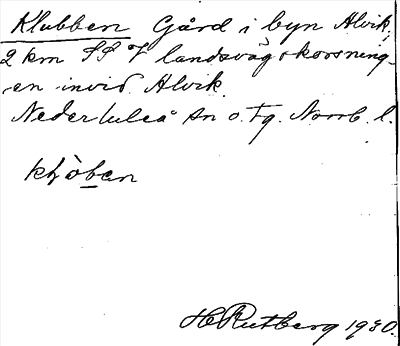 Klubben Gård i byn Alvik,
2 km SSV landsvägskorsning-
en invid Alvik.
Nederluleå sn o. Tg. Norrb. l.
HRutberg 1930.